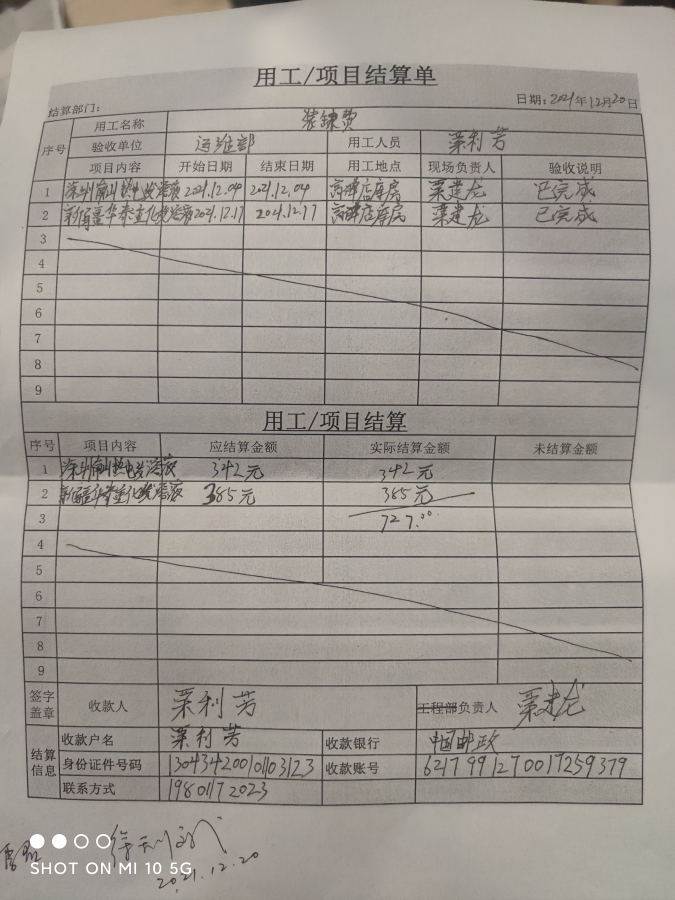 用工/项目结算单
结算部门： 日期：2021年12月20日
序号 用工名称 装镍费
验收单位 运维部 用工人员 栗利芳
项目内容 开始日期 结束日期 用工地点 现场负责人 验收说明
1 2021.12.04 2021.12.04 店库房 栗建龙 已完成
2 2021.12.17 2021.12.17 店库房 栗建龙 已完成
3
4
5
6
7
8
9
用工/项目结算
序号 项目内容 应结算金额 实际结算金额 未结算金额
1 342元 342元
2 385元 385元
3 727.00
4
5
6
7
8
9
签字盖章 收款人 栗利芳 工程部负责人 栗建龙
结算信息 收款户名 栗利芳 收款银行 中国邮政
身份证件号码 130434200101103123 收款账号 6217991270017259379
联系方式 19801172023
2021.12.20
SHOT ON MI 10 5G